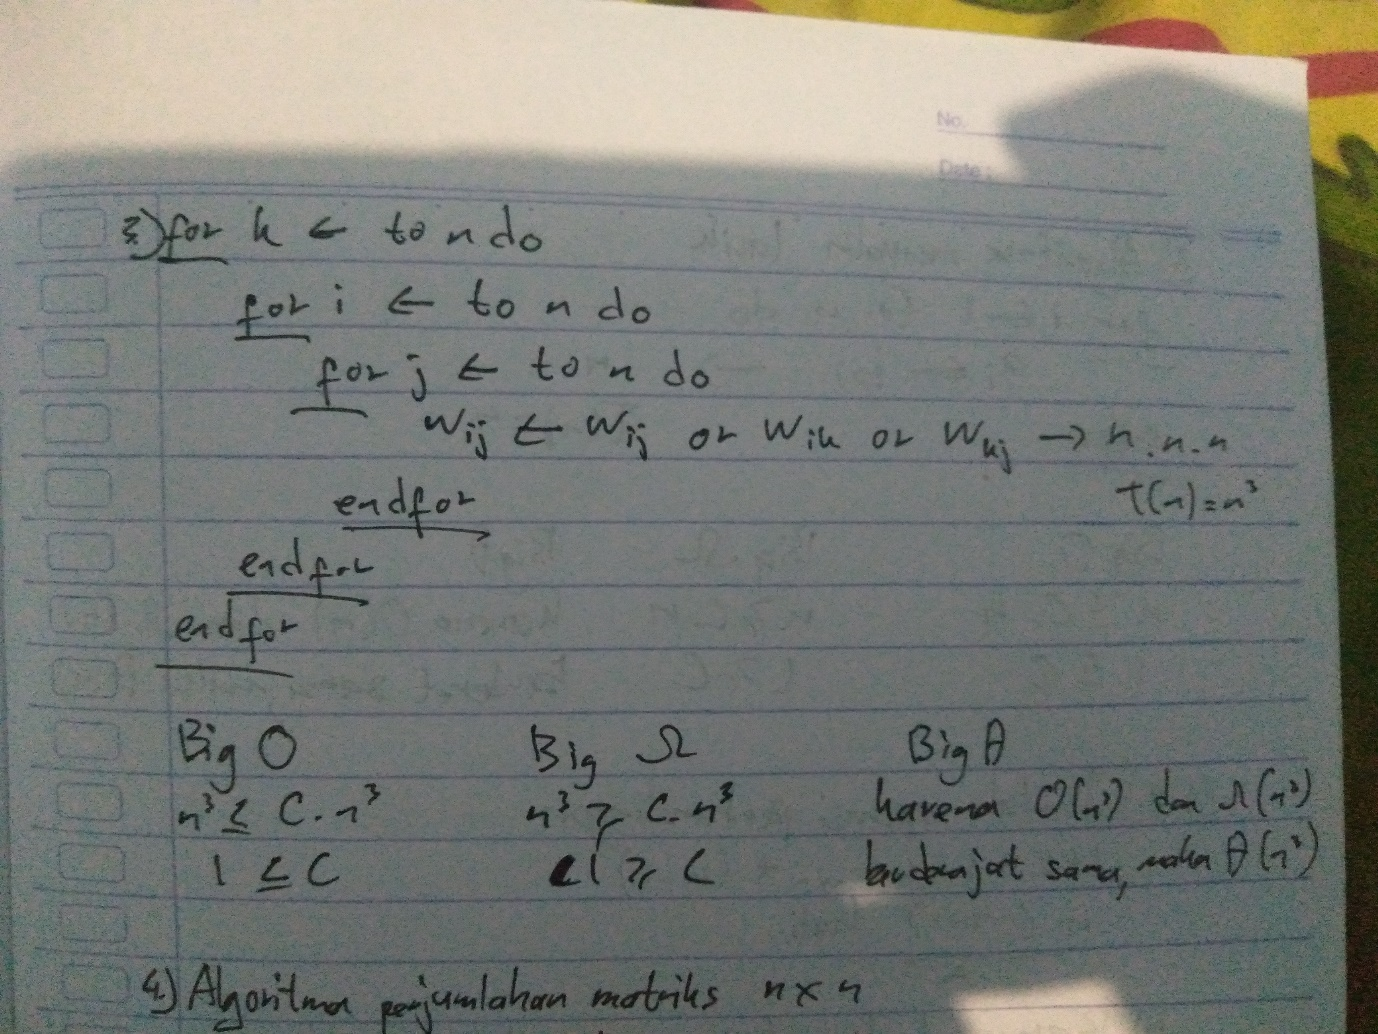 No.
Date :
3) for k ← to n do
for i ← to n do
for j ← to n do
Wij ← Wij or Wik or Wkj → n.n.n
T(n) = n³
endfor
endfor
endfor
Big O Big Ω Big θ
n³ ≤ C.n³ n³ ≥ C.n³ karena O(n³) dan Ω(n³)
1 ≤ C 1 ≥ C berderajat sama, maka θ(n³)
4) Algoritma penjumlahan matriks n x n